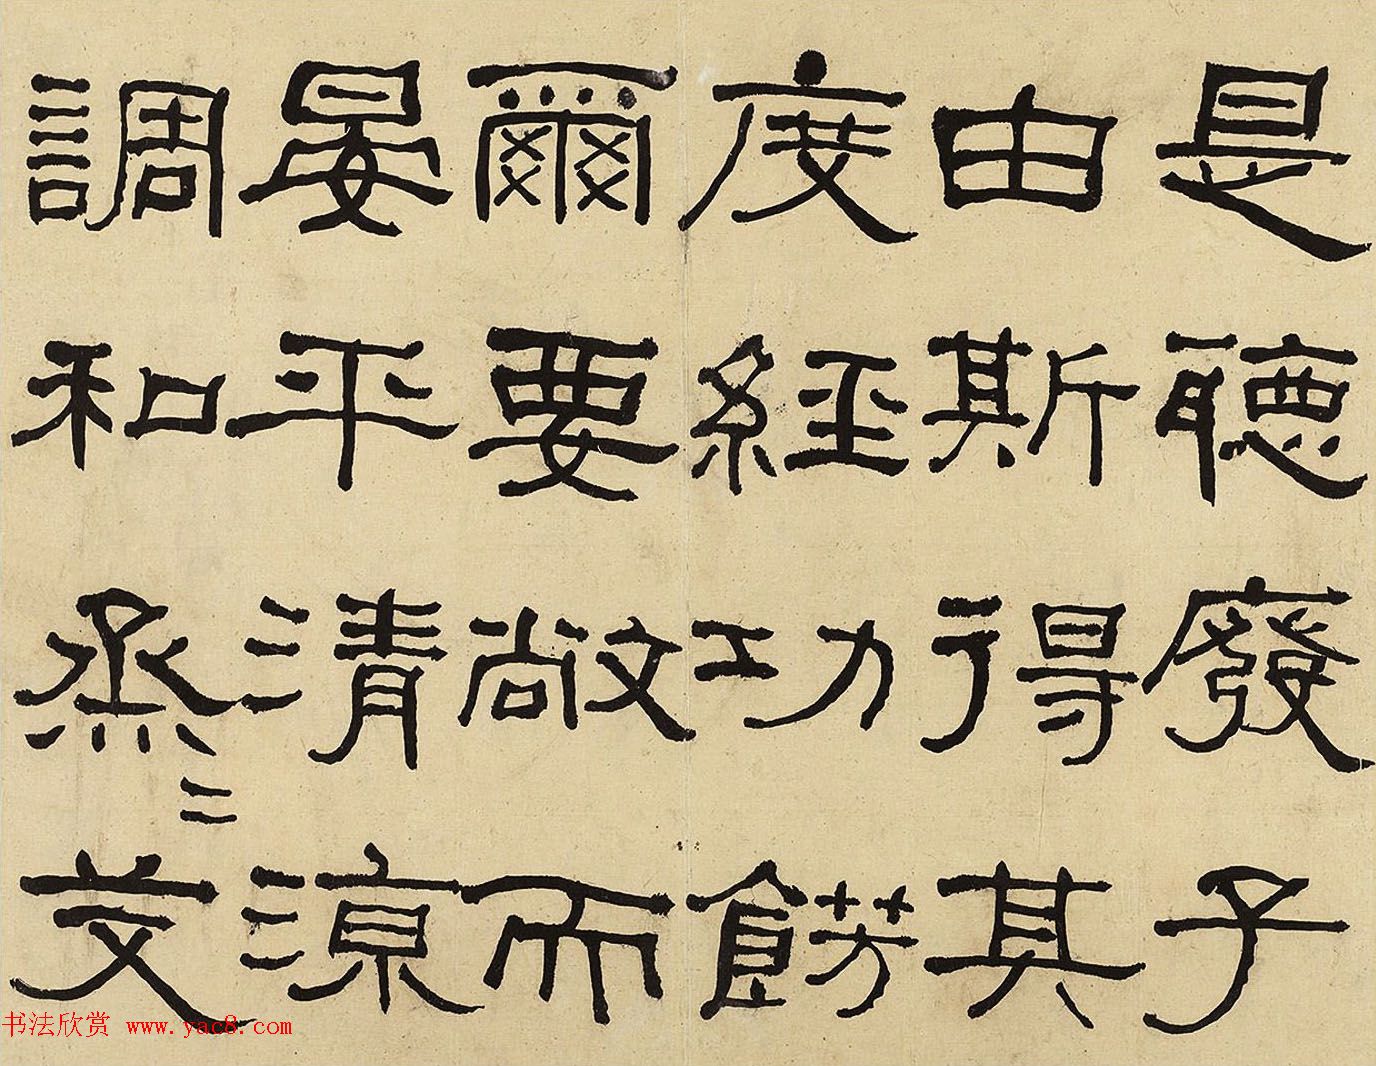 是聽廢子
由斯得其
度經功飭
爾要敞而
晏平清涼
調和烝〻艾
书法欣赏 www.yac8.com